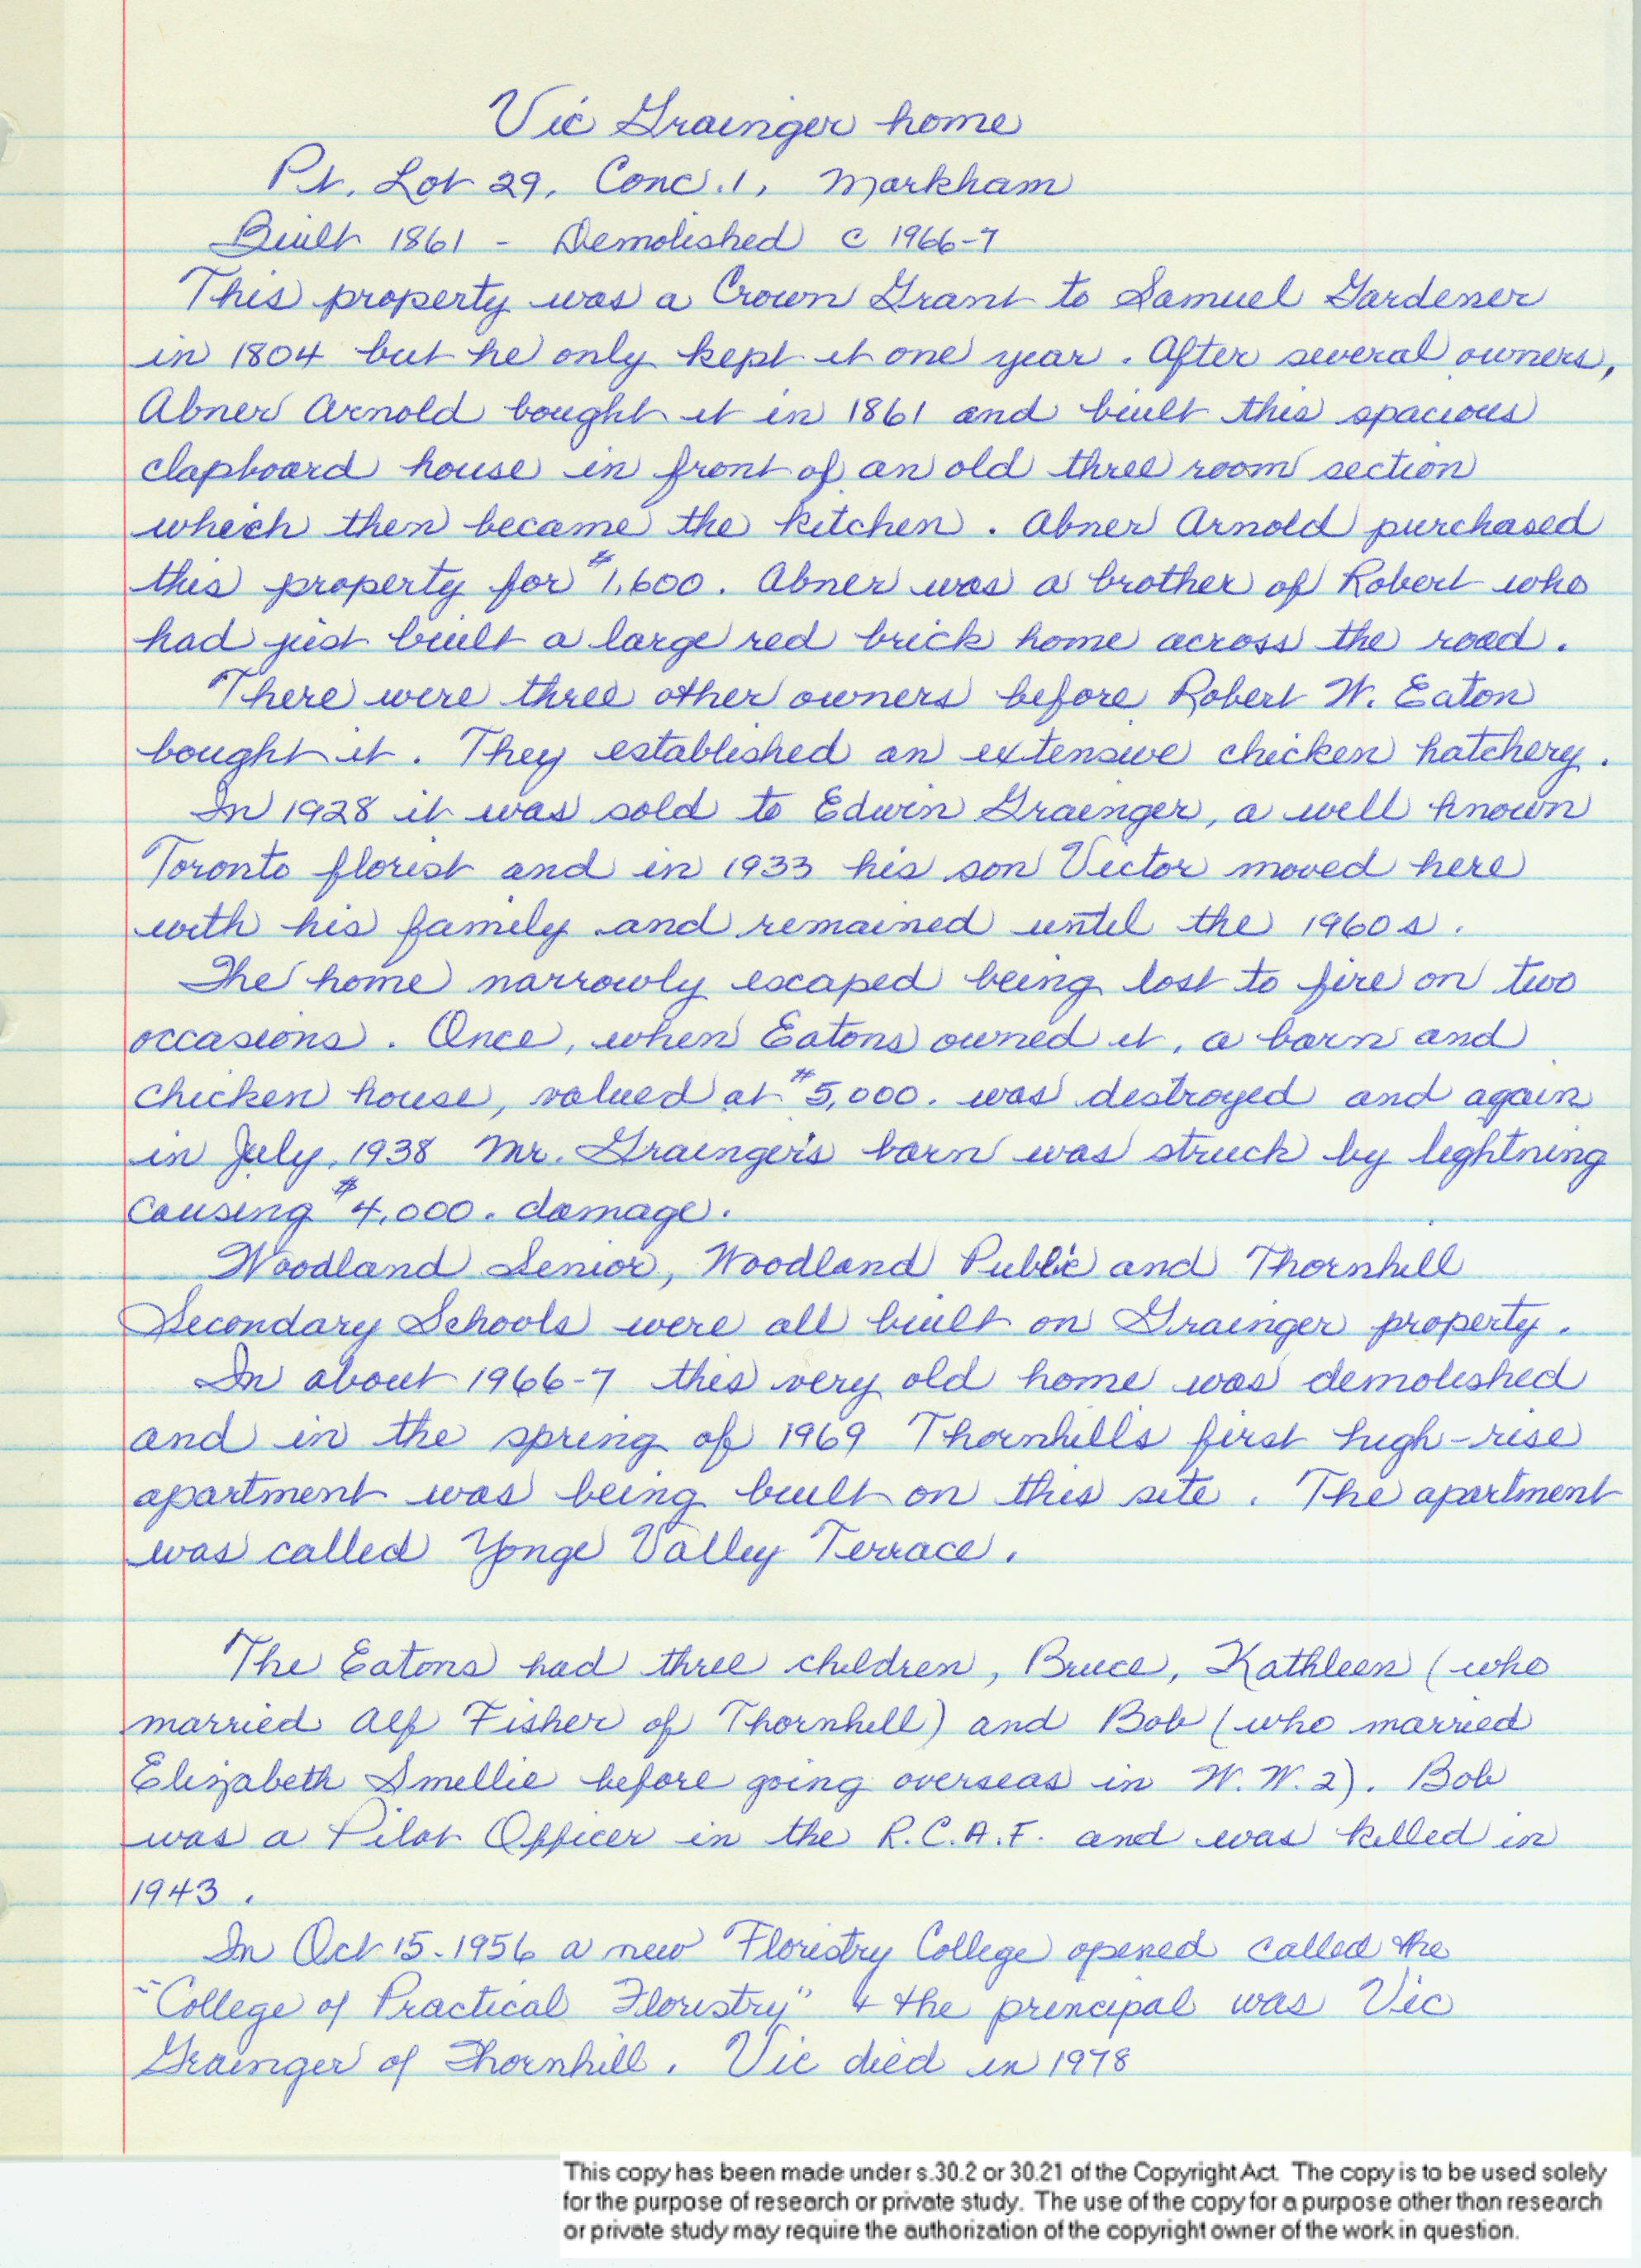 Vic Grainger home
Pt. Lot 29, Conc. 1, Markham
Built 1861 - Demolished c 1966-7
This property was a Crown Grant to Samuel Gardener
in 1804 but he only kept it one year. After several owners,
Abner Arnold bought it in 1861 and built this spacious
clapboard house in front of an old three room section
which then became the kitchen. Abner Arnold purchased
this property for $1,600. Abner was a brother of Robert who
had just built a large red brick home across the road.
There were three other owners before Robert W. Eaton
bought it. They established an extensive chicken hatchery.
In 1928 it was sold to Edwin Grainger, a well known
Toronto florist and in 1933 his son Victor moved here
with his family and remained until the 1960s.
The home narrowly escaped being lost to fire on two
occasions. Once, when Eatons owned it, a barn and
chicken house, valued at $5,000. was destroyed and again
in July, 1938 Mr. Grainger's barn was struck by lightning
causing $4,000. damage.
Woodland Senior, Woodland Public and Thornhill
Secondary Schools were all built on Grainger property.
In about 1966-7 this very old home was demolished
and in the spring of 1969 Thornhill's first high-rise
apartment was being built on this site. The apartment
was called Yonge Valley Terrace.
The Eatons had three children, Bruce, Kathleen (who
married Alf Fisher of Thornhill) and Bob (who married
Elizabeth Smellie before going overseas in W.W.2). Bob
was a Pilot Officer in the R.C.A.F. and was killed in
1943.
In Oct 15-1956 a new Floristry College opened called the
"College of Practical Floristry" & the principal was Vic
Grainger of Thornhill. Vic died in 1978
This copy has been made under s.30.2 or 30.21 of the Copyright Act. The copy is to be used solely
for the purpose of research or private study. The use of the copy for a purpose other than research
or private study may require the authorization of the copyright owner of the work in question.